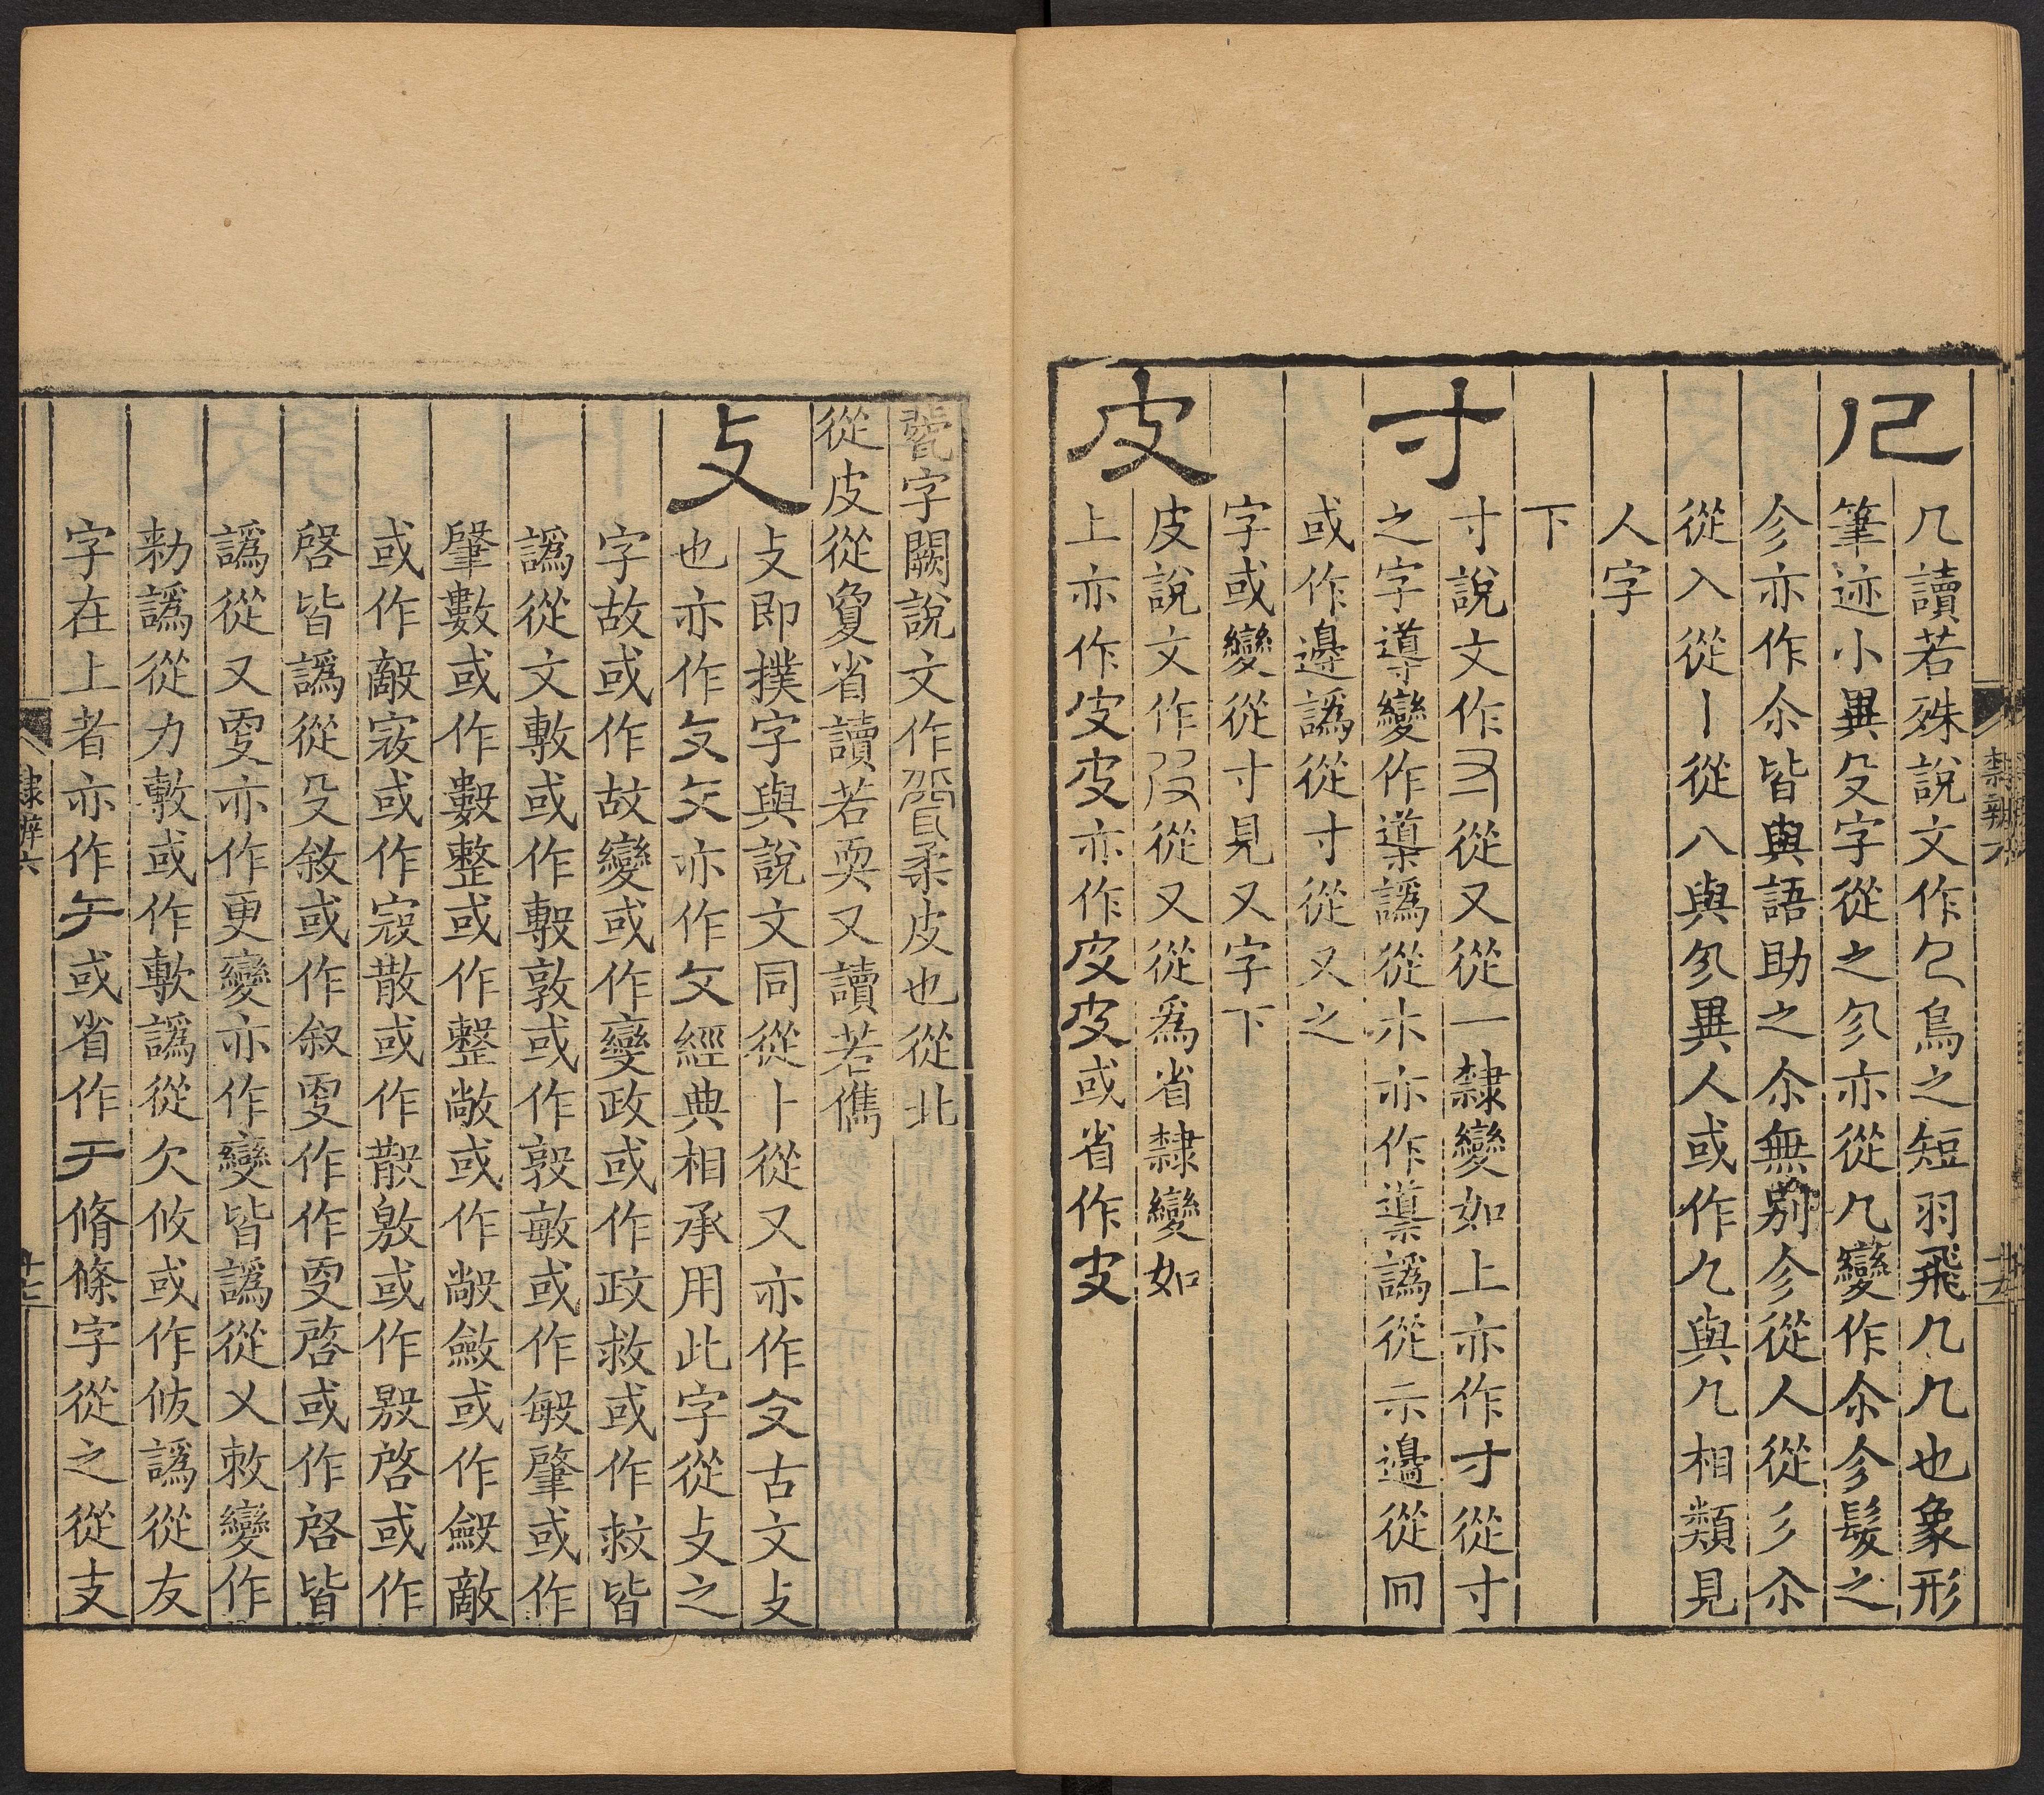 𠘧
𠘧讀若殊說文作𠘧鳥之短羽飛𠘧𠘧也象形
筆迹小異殳字從之㐱亦從𠘧變作尒㐱髮之
㐱亦作尒皆與語助之尒無別㐱從人從彡尒
從入從丨從八與㐱異人或作𠘧與𠘧相類見
人字
下
寸
寸說文作從又從一隸變如上亦作寸從寸
之字導變作導譌從木亦作導譌從示邊從冋
或作邊譌從寸從又之
字或變從寸見又字下
皮
皮說文作從又從爲省隸變如
上亦作亦作或省作
㼱字闕說文作㼱柔皮也從北
從皮從敻省讀若耎又讀若儁
攴
攴即撲字與說文同從卜從又亦作古文攴
也亦作亦作攵經典相承用此字從攴之
字故或作變或作政或作政救或作救皆
譌從文敷或作敦或作敏或作敏肇或作
肇數或作數整或作整敞或作敞斂或作斂敵
或作敵寇或作寇散或作散敫或作啓或作
啓皆譌從殳敘或作叙叟作作啓或作啓皆
譌從又亦作更變亦作變皆譌從乂敕變作
勑譌從力敷或作譌從欠攸或作譌從友
字在上者亦作或省作脩條字從之從支
隸辨六
十七
隸辨六
十六